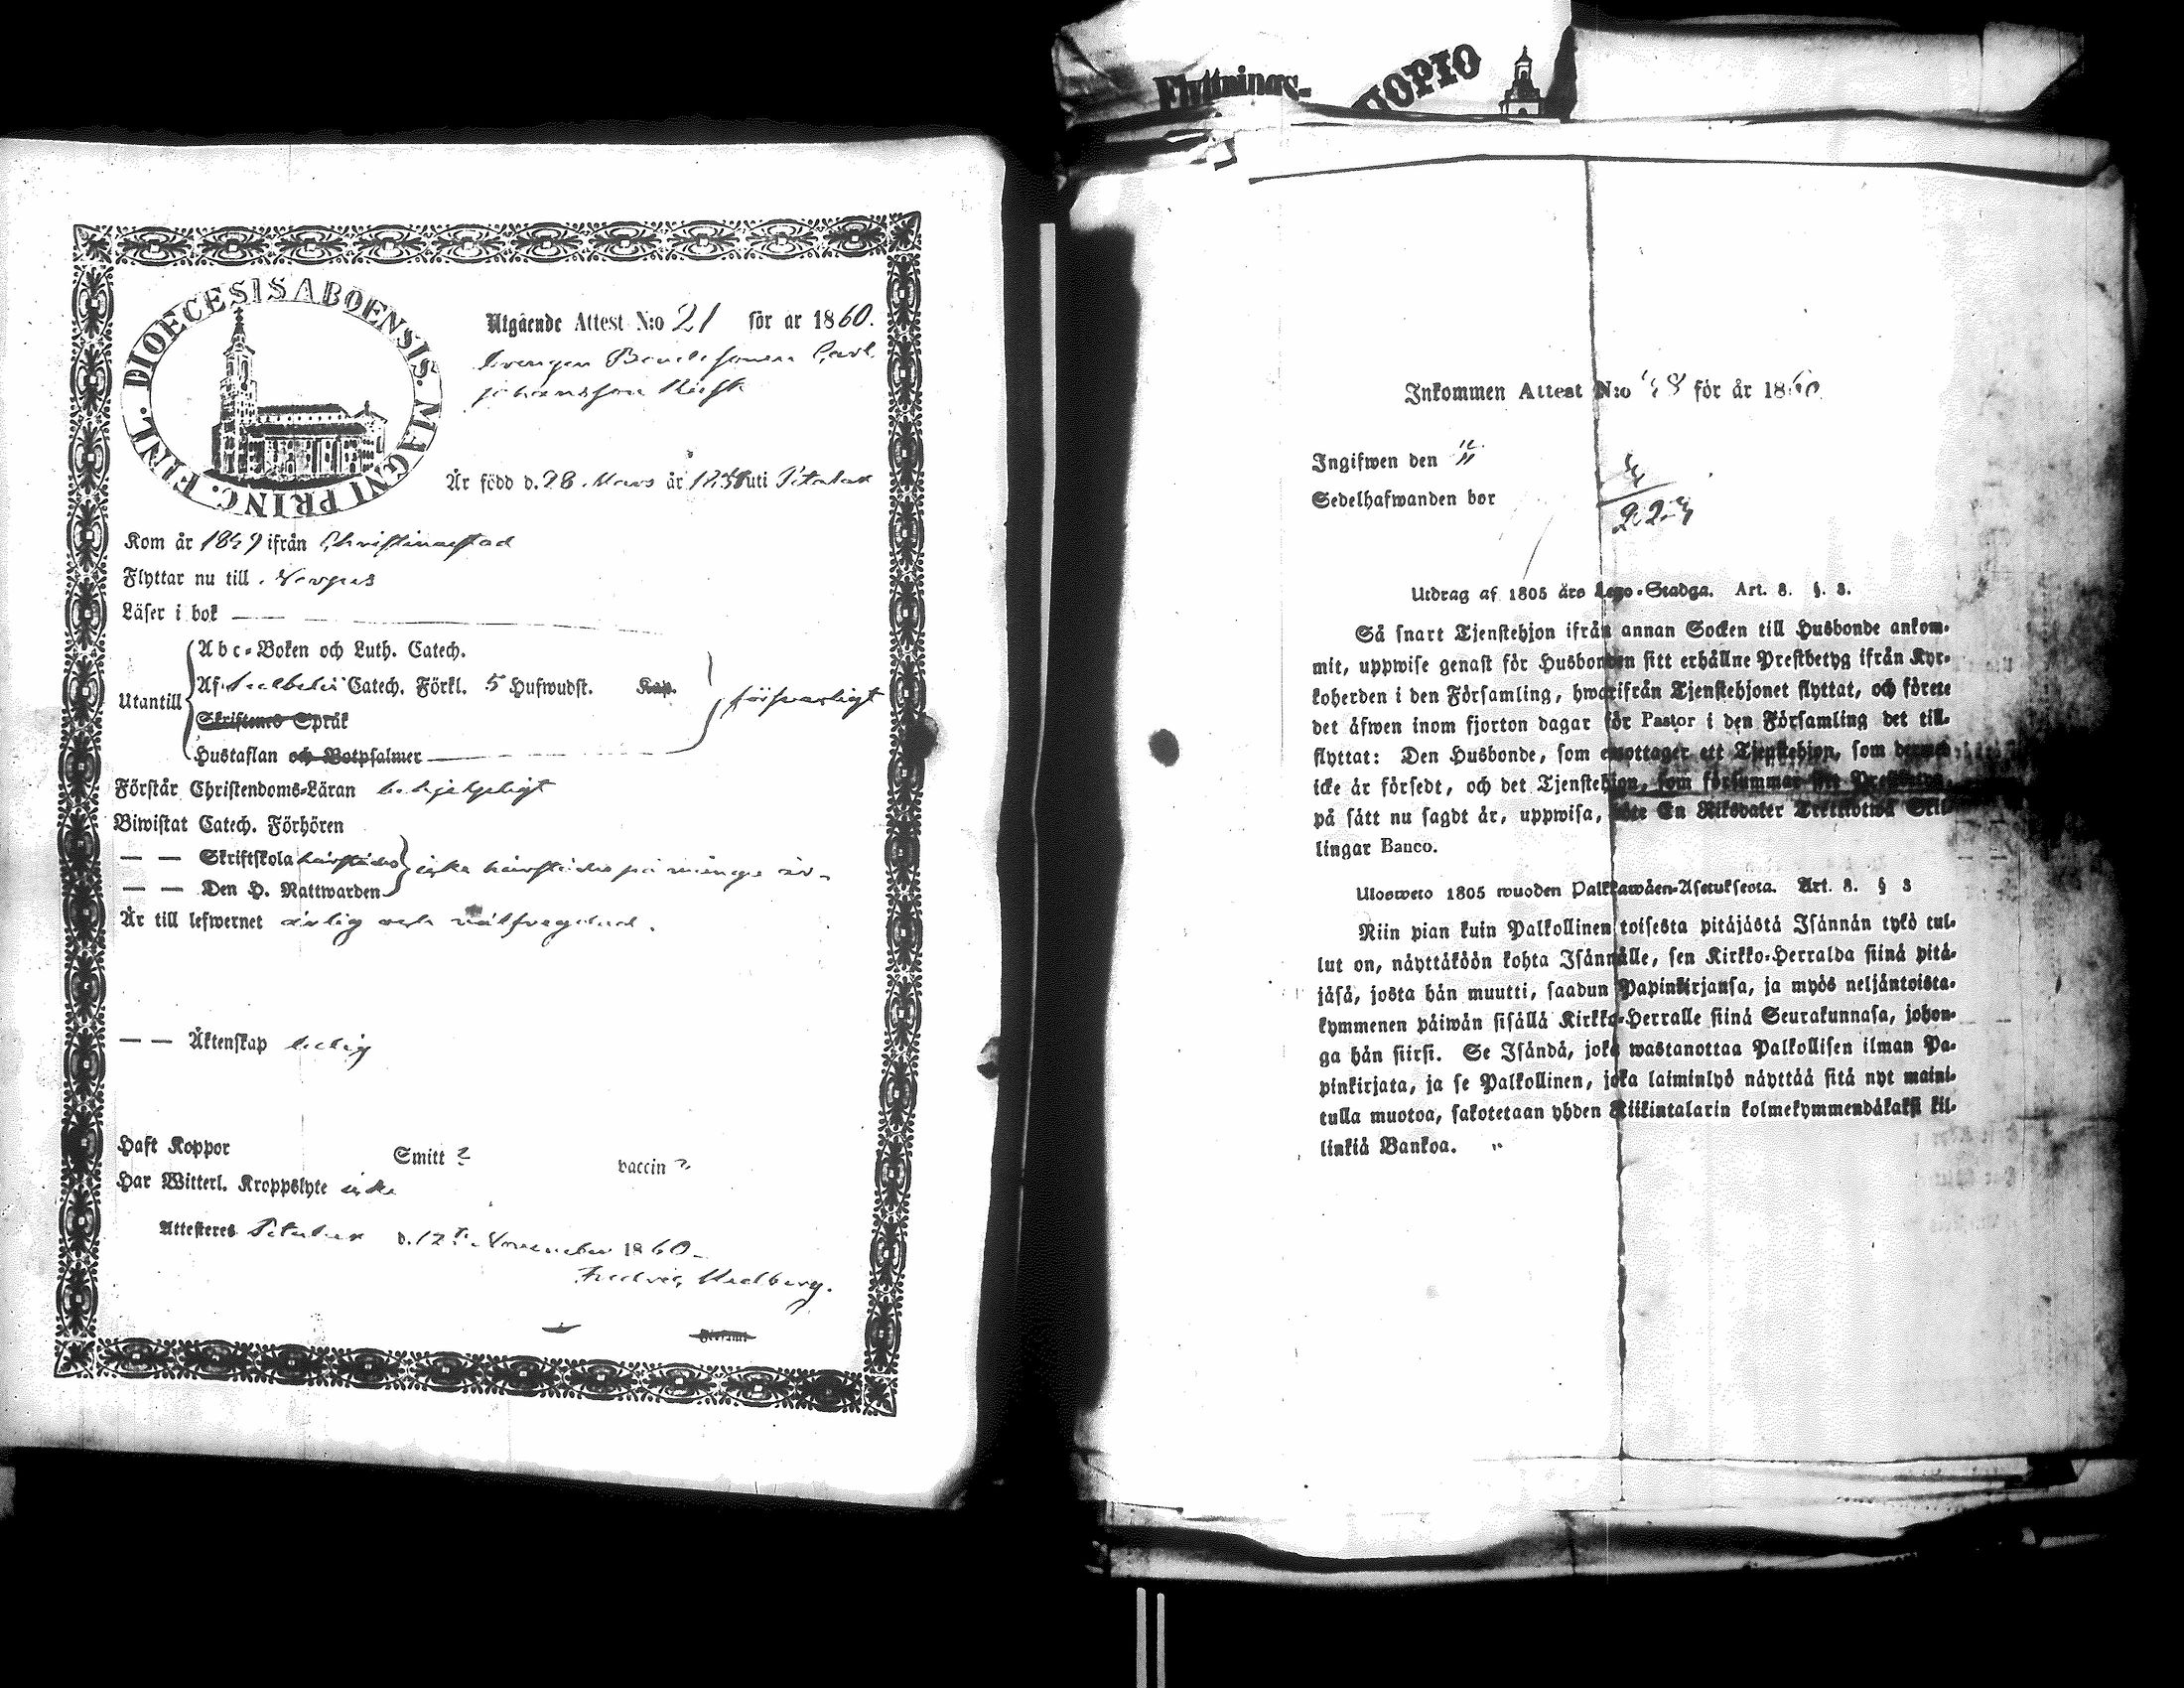 DIOECESIS ABOENSIS. MAGNI PRINC. FINL.
Utgående Attest N:o 21 för år 1860.
Drengen Bondesonen Carl
Johansson
Är född d. 28 Mars år uti Pitalax
Kom år 1859 ifrån Christinestad
Flyttar nu till Nerpes
Läser i bok ——
Utantill
Abc-Boken och Luth. Catech.
Af Svebelii Catech. Förkl. 5 Hufwudst. Kap.
Skriftenes Språk
Hustaflan och Botpsalmer
försvarligt
Förstår Christendoms-Läran
Biwistat Catech. Förhören
— — Skriftskola härstädes
— — Den H. Nattwarden
icke härstädes på många år
Är till lefwernet ärlig och välfregdad.
— — Äktenskap ledig
Haft Koppor Smitt ? vaccin ?
Har Witterl. Kroppslyte icke
Attesteres Pitalax d. 12te November 1860
Fredric Hedberg.
Flyttnings-
UOPIO
Inkommen Attest N:o för år 1860
Ingifwen den
Sedelhafwanden bor
Utdrag af 1805 års Lego-Stadga. Art. 8. §. 3.
Så snart Tjenstehjon ifrån annan Socken till Husbonde ankom-
mit, uppwise genast för Husbonden sitt erhållne Prestbetyg ifrån Kyr-
koherden i den Församling, hwarifrån Tjenstehjonet flyttat, och förete
det äfwen inom fjorton dagar för Pastor i den Församling det till-
flyttat: Den Husbonde, som emottager ett Tjenstehjon, som dermed
icke är försedt, och det Tjenstehjon, som försummar sitt Prestbetyg,
på sätt nu sagdt är, uppwisa, böte En Riksdaler Trettiotwå Skil-
lingar Banco.
Ulosweto 1805 wuoden Palkkawäen-Asetuksesta. Art. 8. § 3
Niin pian kuin Palkollinen toisesta pitäjästä Isännän tykö tul-
lut on, näyttäköön kohta Isännälle, sen Kirkko-Herralda siinä pitä-
jäsä, josta hän muutti, saadun Papinkirjansa, ja myös neljäntoista-
kymmenen päiwän sisällä Kirkko-Herralle siinä Seurakunnasa, johon-
ga hän siirsi. Se Isändä, joka wastanottaa Palkollisen ilman Pa-
pinkirjata, ja se Palkollinen, joka laiminlyö näyttää sitä nyt maini-
tulla muotoa, sakotetaan yhden Riikintalarin kolmekymmendäkaksi kil-
linkiä Bankoa.